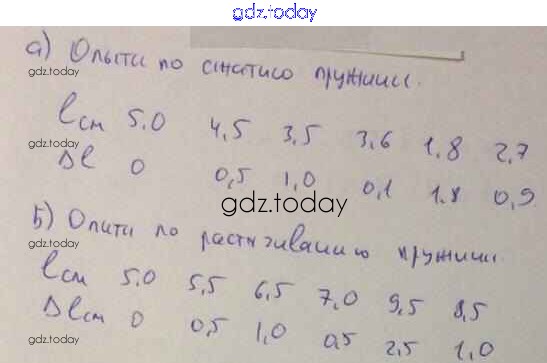 gdz.today
а) Опыты по сжатию пружины.
gdz.today
l см 5.0 4,5 3,5 3,6 1,8 2,7
gdz.today
Δl 0 0,5 1,0 0,1 1.8 0,9
gdz.today
б) Опыты по растягиванию пружины.
gdz.today
l см 5.0 5,5 6,5 7,0 9,5 8,5
Δl см 0 0,5 1,0 0,5 2,5 1,0
gdz.today